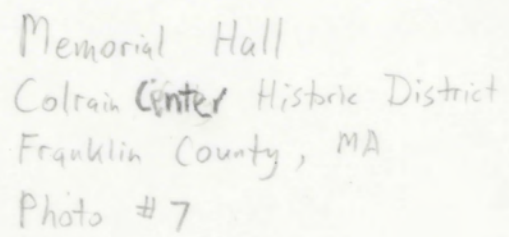 Memorial Hall
Colrain Center Historic District
Franklin County, MA
Photo #7